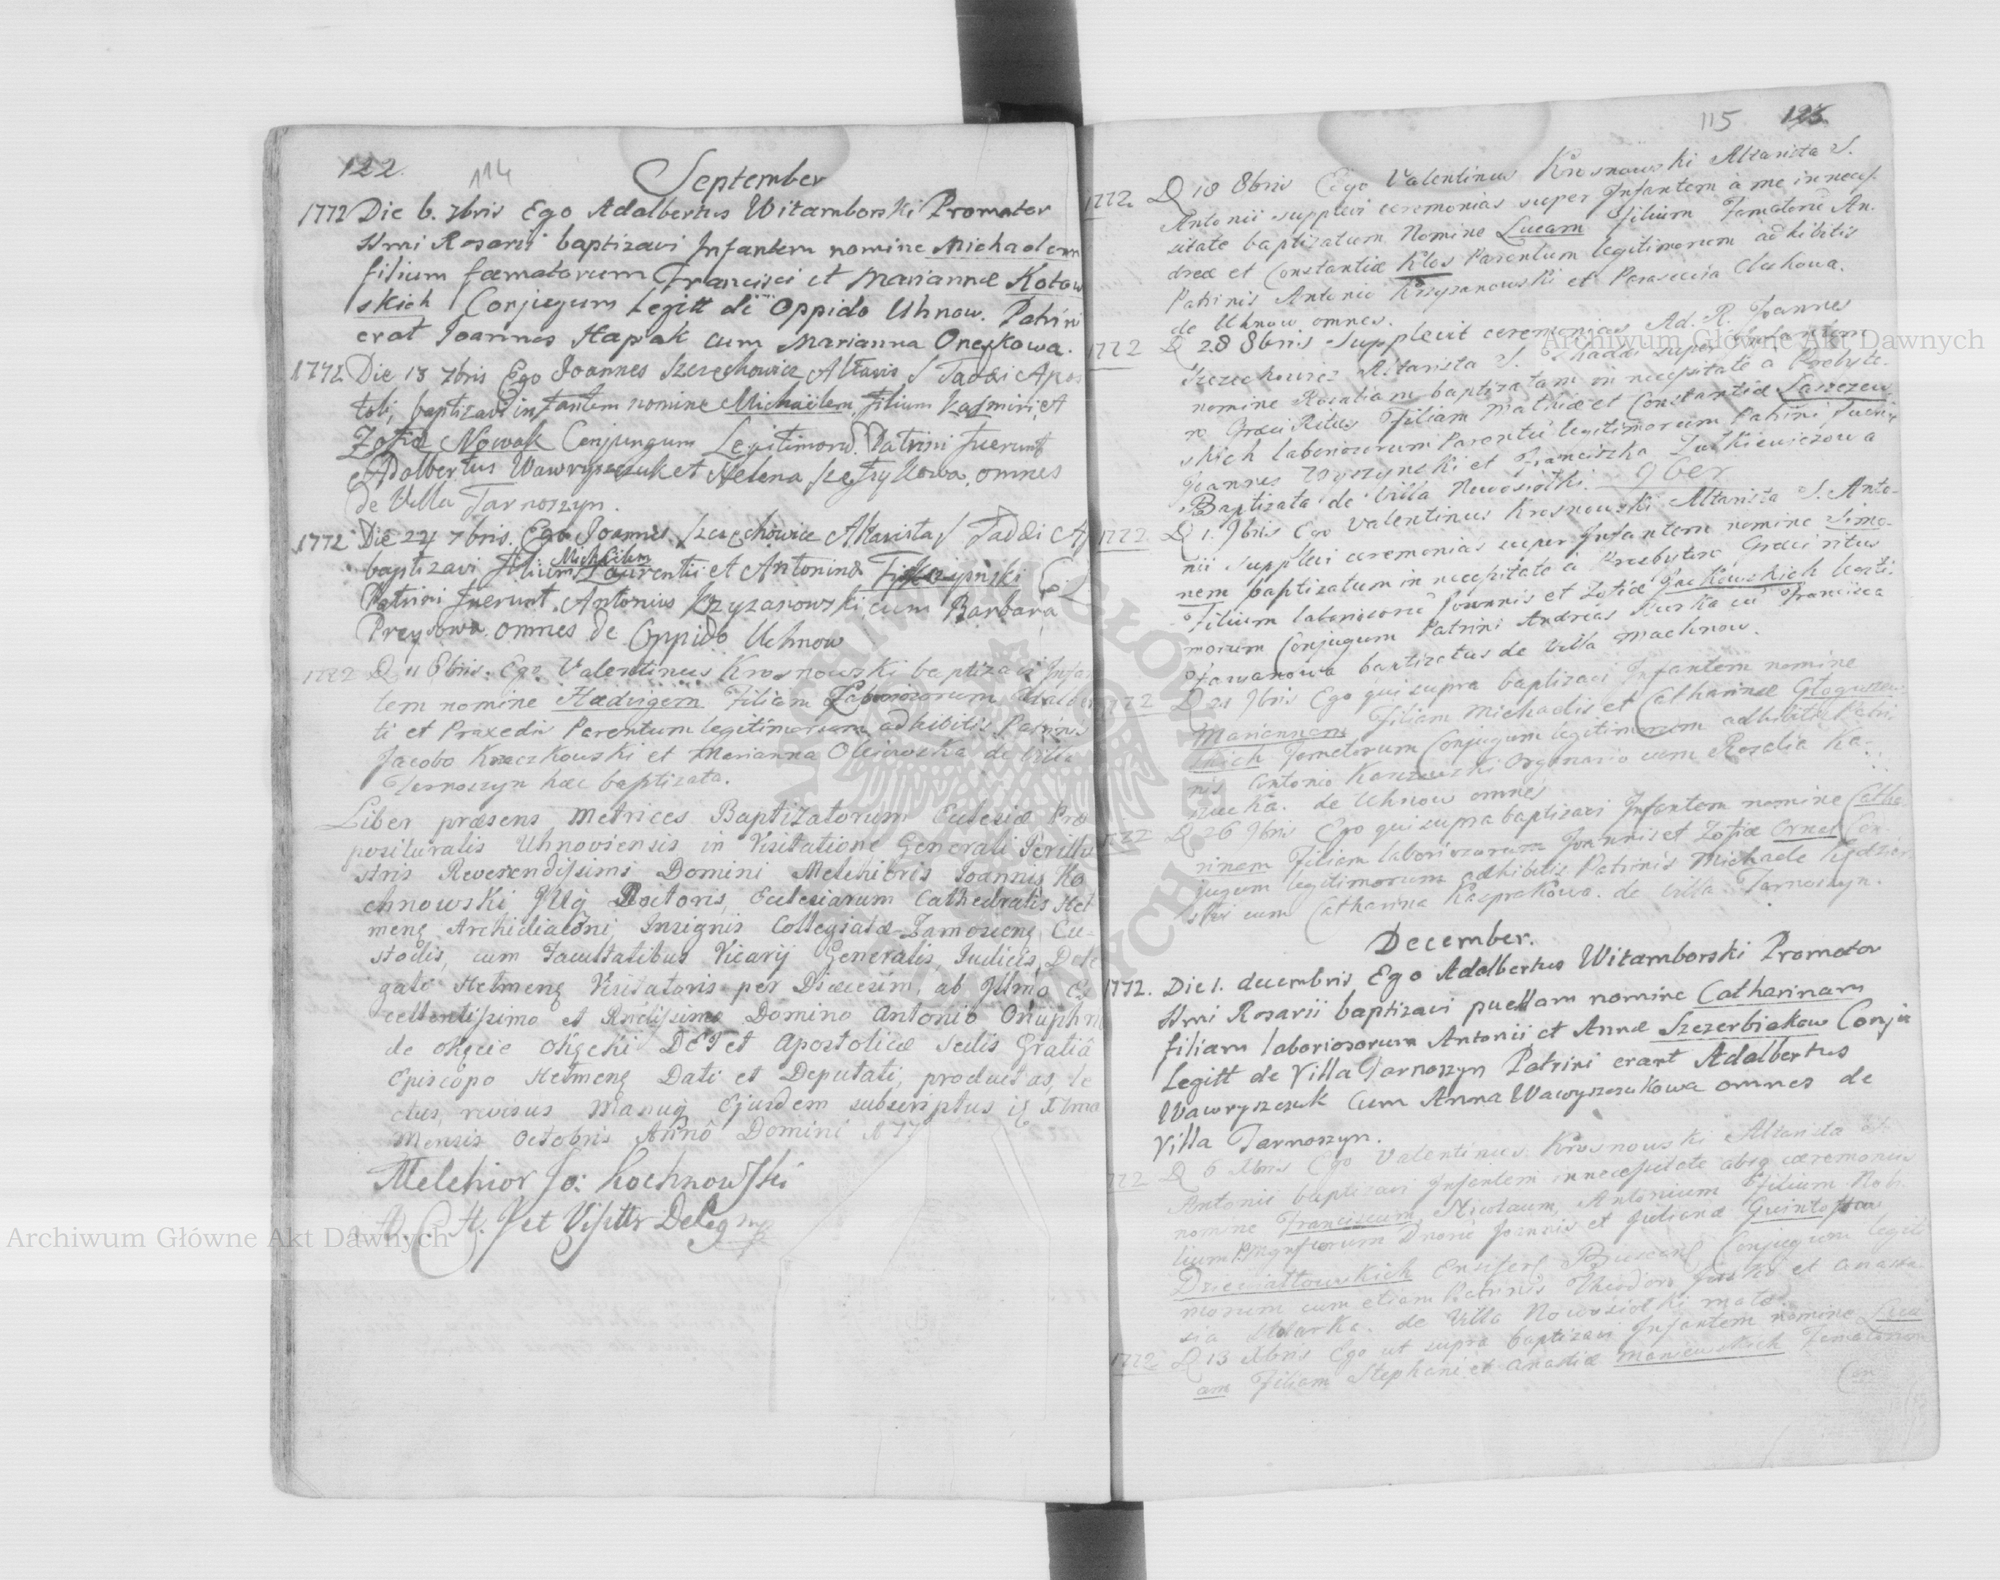 122.
114
September
1772 Die 6. 7bris Ego Adalbertus Witamborski Promotor
SSmi Rosarii baptizavi Infantem nomine Michaelem
filium famatorum Francisci et Mariannæ Kotow
skich Conjugum Legitt de Oppido Uhnow. Patrini
erat Joannes Hapak cum Marianna
1772 Die 18 7bris Ego Joannes Szczechowicz Altaris S Taddi Apos
toli, baptizavi infantem nomine Michaëlem, Filium Kazmiri, et
Zofiæ Nowak Conjungum Legitimorū. Patrini fuerunt
Adolbertus et Helena omnes
de Villa Tarnoszyn.
1772 Die 27 7bris. Ego Joannes Szczechowicz Altarista S Taddi A
Michælem
baptizavi filium Laurentii et Antoninæ
Patrini fuerunt Antonius Krzyzanowski cum Barbara
omnes de Oppido Uchnow
1772 D 11 8bris. Ego Valentinus Krosnowski baptizavi Infan
tem nomine Hædvigem Filiam Laboriosorum
ti et Praxedis Parentum legitimorum adhibitis Patrinis
Jacobo Kraczkowski et Marianna de Villa
Tarnoszyn hæc baptizata.
Liber præsens Metrices Baptizatorum Eclesiæ Præ
posituralis Uhnoviensis in Visitatione Generali Perillu
stris Reverendissimi Domini Melchioris Joannis Ko
chnowski Doctoris, Eclesiarum Cathedralis Hel
meng Archidiacōni Insignis Collegiatæ Zamosceng Cu-
stodis, cum Facultatibus Vicarÿ Generalis, Iudicis, Dele
gati Helmeng Visitatoris per Diæcesim, ab Illmo Ex
cellentissimo et Rndissimo Domino Antonio Onuphri
de Okęcie Okęcki DEI et Apostolicæ Sedis Gratiâ
Episcopo Helmeng Dati et Deputati, productus, le
ctus, revisus Manuq Ejusdem subscriptus
Mensis Octobris Annô Domini
Melchior Jo: Kochnowski
A. C. H. et Visittr Deleg mp
115 123.
1772 D 18 8bris Ego Valentinus Krosnowski Altarista S.
Antonii supplevi ceremonias super Infantem à me in neces
sitate baptizatum Nomine Lucam filium Famatorū An.
dreæ et Constantiæ Kłos Parentum legitimorum adhibitis
Patrinis Antonio Krzyzanowski et Parascevia
de Uhnow omnes.
1772 D 28 8bris Supplevit ceremonias Ad. R. Joannes
Szczechowicz Altarista S. Thadæi super Infantem
nomine Rosaliam baptizatam in necessitate a Presbyte.
ro Græci Ritus Filiam Mathiæ et Constantiæ Laszczew
skich laboriosorum Parentū legitimorum Patrini fuerū
Joannes et Franciszka Zutkiewiczowa
Baptizata de Villa Nowosiołki. 9ber
1772 D 1. 9bris Ego Valentinus Krosnowski Altarista S. Anto-
nii supplevi ceremonias super Infantem nomine Simo-
nem baptizatum in necessitate à Presbytero Græci ritus
Filium laboriosorū Joannis et Zofiæ legiti-
morum Conjugum Patrini Andreas cū Francisca
baptizatus de Villa Machnow.
1772 D 21 9bris Ego qui supra baptizavi Infantem nomine
Mariannam Filiam Michaelis et Catharinæ
skich Fametorum Conjugum legitimorum adhibitis Patri
nis Antonio Organario cum Rozalia Ka-
de Uhnow omnes
1772 D 26 9bris Ego qui supra baptizavi Infantem nomine Catha
rinam Filiam laboriosorum Joannis et Zofiæ Ornat Con-
jugum legitimorum adhibitis Patrinis Michaele
ski cum Catharina Kasprakowa. de Villa Tarnoszyn.
December.
1772. Die 1. decembris Ego Adalbertus Witamborski Promotor
SSmi Rosarii baptizavi puellam nomine Catharinam
filiam laboriosorum Antonii et Annæ Szczerbiakow Conju
Legitt de Villa Tarnoszyn Patrini erant Adalbertus
Wawryszczuk cum Anna Wawryszczukowa omnes de
Villa Tarnoszyn.
1772 D 6 Xbris Ego Valentinus Krosnowski Altarista S.
Antonii baptizavi Infantem in necessitate absq cæremoniis
nomine Franciscum, Nicolaum, Antonium Filium Nob.
lium Dnorū Joannis et Julianæ
Dzieciałtowskich Conjugum legit
morum cum etiam Patrinis Theodoro et Anasta
sia de Villa Nowosiołki
1772 D 13 Xbris Ego ut supra baptizavi Infantem nomine Luci
am Filiam Stephani et Anastiæ Maniewskich Famatorum
Con
Archiwum Główne Akt Dawnych
Archiwum Główne Akt Dawnych